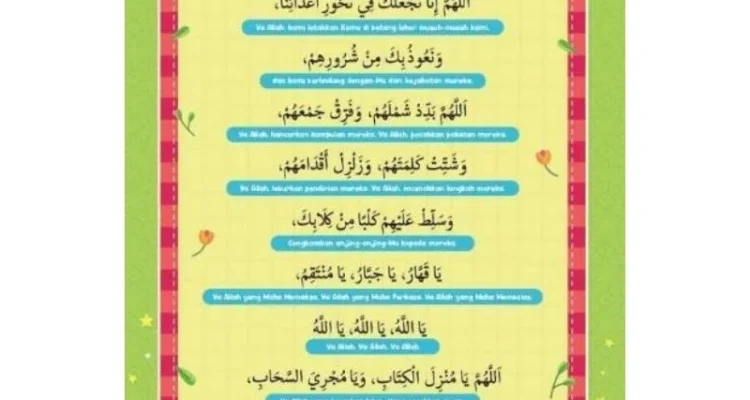 اَللَّهُمَّ إِنَّا نَجْعَلُكَ فِي نُحُورِ أَعْدَائِنَا،
Ya Allah, kami letakkan Kamu di batang leher musuh-musuh kami,
وَنَعُوذُ بِكَ مِنْ شُرُورِهِمْ،
dan kami berlindung dengan-Mu dari kejahatan mereka.
اَللَّهُمَّ بَدِّدْ شَمْلَهُمْ، وَفَرِّقْ جَمْعَهُمْ،
Ya Allah, hancurkan kumpulan mereka. Ya Allah, pecahkan pakatan mereka.
وَشَتِّتْ كَلِمَتَهُمْ، وَزَلْزِلْ أَقْدَامَهُمْ،
Ya Allah, leburkan pendirian mereka. Ya Allah, musnahkan langkah mereka.
وَسَلِّطْ عَلَيْهِمْ كَلْبًا مِنْ كِلَابِكَ،
anjing-anjing-Mu kepada mereka.
يَا قَهَّارُ، يَا جَبَّارُ، يَا مُنْتَقِمُ،
Ya Allah yang Maha Ya Allah yang Maha Perkasa. Ya Allah yang Maha
يَا اَللَّهُ، يَا اَللَّهُ، يَا اَللَّهُ
Ya Allah, Ya Allah, Ya Allah
اَللَّهُمَّ يَا مُنْزِلَ الْكِتَابِ، وَيَا مُجْرِيَ السَّحَابِ،